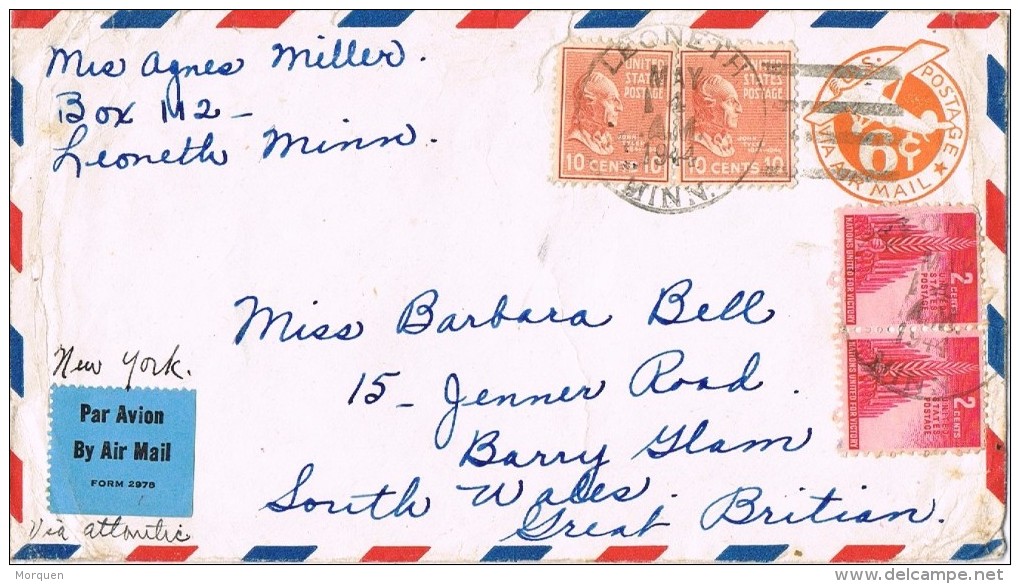 Mis Agnes Miller.
Box 112-
Leoneth Minn.
LEONETH
MAY
AM
1944
MINN.
UNITED
STATES
POSTAGE
10 CENTS 10
UNITED
STATES
POSTAGE
10 CENTS 10
U.S. POSTAGE
6¢
VIA AIR MAIL
NATIONS UNITED FOR VICTORY
UNITED
STATES
POSTAGE
2 CENTS
NATIONS UNITED FOR VICTORY
UNITED
STATES
POSTAGE
2 CENTS
1944
Miss Barbara Bell
15- Jenner Road.
Barry Glam
South Wales.
Great Britian.
New York.
Par Avion
By Air Mail
FORM 2978
Via atlantic
Morquen
www.delcampe.net